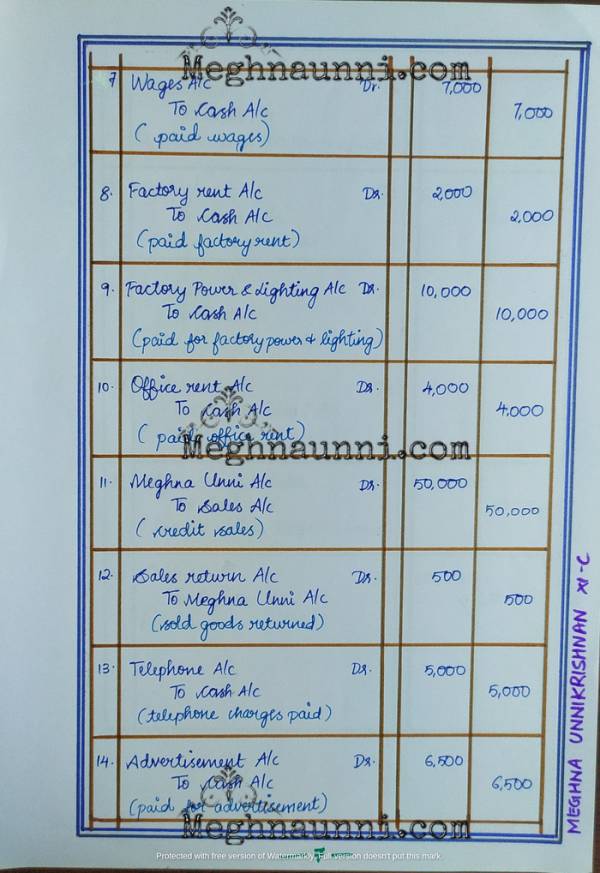 Meghnaunni.com
7 Wages A/c Dr. 7,000
To Cash A/c 7,000
( paid wages)
8. Factory rent A/c Dr. 2,000
To Cash A/c 2,000
(paid factory rent)
9. Factory Power & Lighting A/c Dr. 10,000
To Cash A/c 10,000
(paid for factory power & lighting)
10. Office rent A/c Dr. 4,000
To Cash A/c 4.000
( paid office rent)
Meghnaunni.com
11. Meghna Unni A/c Dr. 50,000
To Sales A/c 50,000
( credit sales)
12. Sales return A/c Dr. 500
To Meghna Unni A/c 500
(sold goods returned)
13. Telephone A/c Dr. 5,000
To Cash A/c 5,000
(telephone charges paid)
14. Advertisement A/c Dr. 6,500
To Cash A/c 6,500
(paid for advertisement)
Meghnaunni.com
MEGHNA UNNIKRISHNAN XI-C
Protected with free version of Watermarkly. Full version doesn't put this mark.